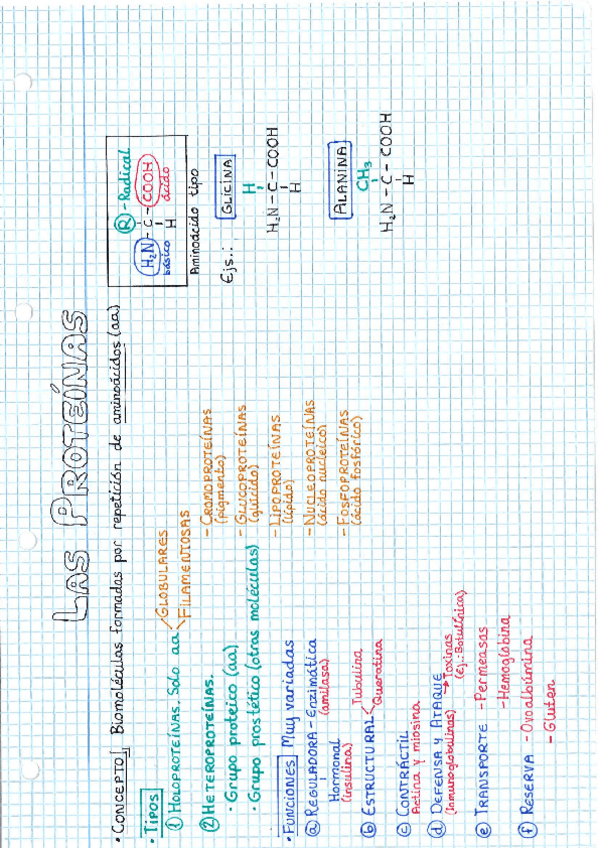 LAS PROTEÍNAS
• CONCEPTO Biomoléculas formadas por repetición de aminoácidos (aa)
• TIPOS
① HOLOPROTEÍNAS. Solo aa
GLOBULARES
FILAMENTOSAS
② HETEROPROTEÍNAS.
• Grupo proteico (aa)
• Grupo prostético (otras moléculas)
- CROMOPROTEÍNAS
(pigmento)
- GLUCOPROTEÍNAS
(glúcido)
- LIPOPROTEÍNAS
(lípido)
- NUCLEOPROTEÍNAS
(ácido nucleico)
- FOSFOPROTEÍNAS
(ácido fosfórico)
• FUNCIONES Muy variadas
ⓐ REGULADORA - Enzimática
(amilasa)
Hormonal
(insulina)
ⓑ ESTRUCTURAL
Tubulina
Queratina
ⓒ CONTRÁCTIL
Actina y miosina
ⓓ DEFENSA Y ATAQUE
(Inmunoglobulinas) → Toxinas
(Ej.: Botulínica)
ⓔ TRANSPORTE - Permeasas
- Hemoglobina
ⓕ RESERVA - Ovoalbúmina
- Gluten
R - Radical
H₂N - C - COOH
básico H ácido
Aminoácido tipo
Ejs.:
GLICINA
H
H₂N - C - COOH
H
ALANINA
CH₃
H₂N - C - COOH
H